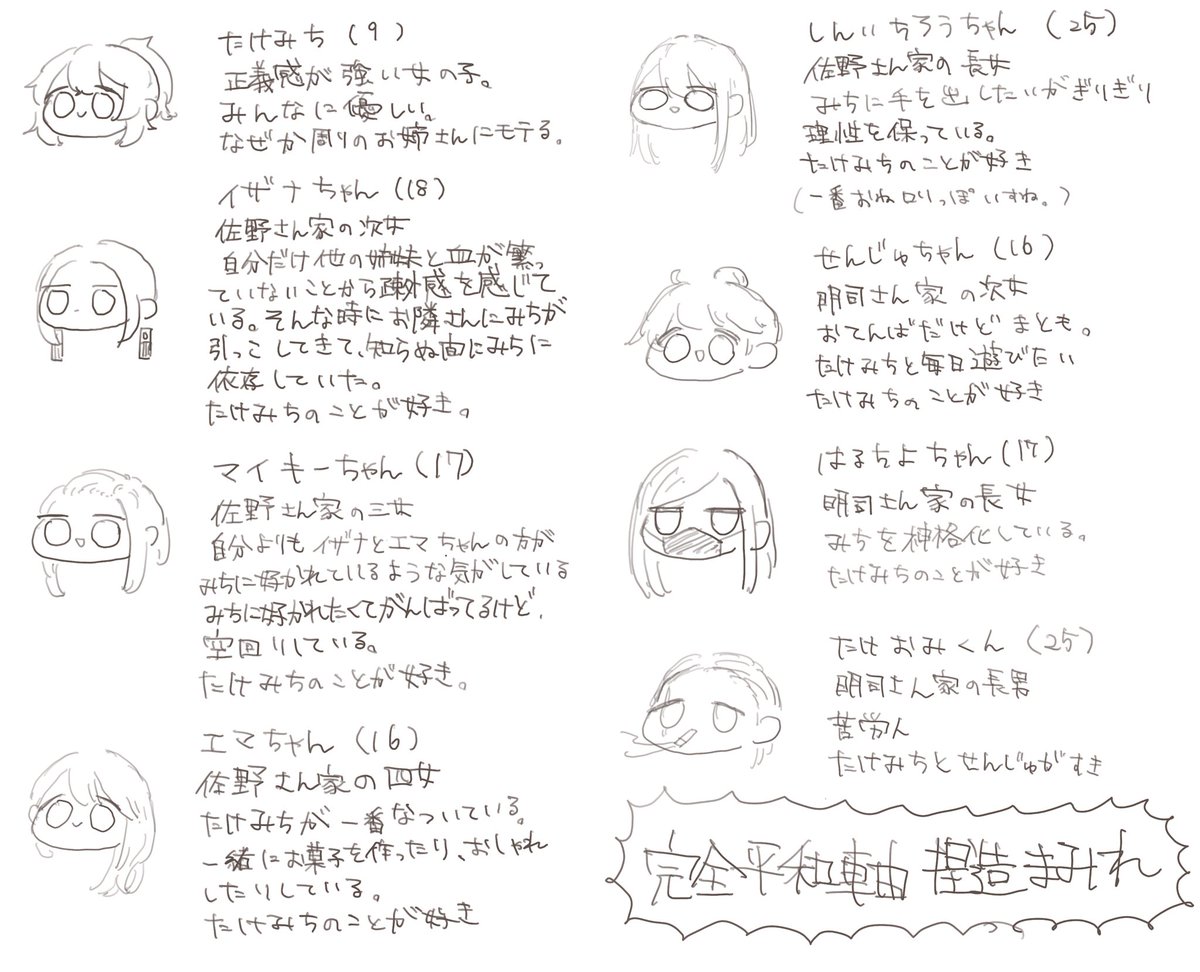 たけみち（9）
正義感が強い女の子。
みんなに優しい。
なぜか周りのお姉さんにモテる。
イザナちゃん（18）
佐野さん家の次女
自分だけ他の姉妹と血が繋っ
ていないことから疎外感を感じて
いる。そんな時にお隣さんにみちが
引っこしてきて、知らぬ間にみちに
依存していた。
たけみちのことが好き。
マイキーちゃん（17）
佐野さん家の三女
自分よりもイザナとエマちゃんの方が
みちに好かれているような気がしている
みちに好かれたくてがんばってるけど、
空回りしている。
たけみちのことが好き。
エマちゃん（16）
佐野さん家の四女
たけみちが一番なついている。
一緒にお菓子を作ったり、おしゃれ
したりしている。
たけみちのことが好き
しんいちろうちゃん（25）
佐野さん家の長女
みちに手を出したいがぎりぎり
理性を保っている。
たけみちのことが好き
（一番おねロリっぽいすね。）
せんじゅちゃん（16）
明司さん家の次女
おてんばだけどまとも。
たけみちと毎日遊びたい
たけみちのことが好き
はるちよちゃん（17）
明司さん家の長女
みちを神格化している。
たけみちのことが好き
たけおみくん（25）
明司さん家の長男
苦労人
たけみちとせんじゅがすき
完全平和軸 捏造まみれ